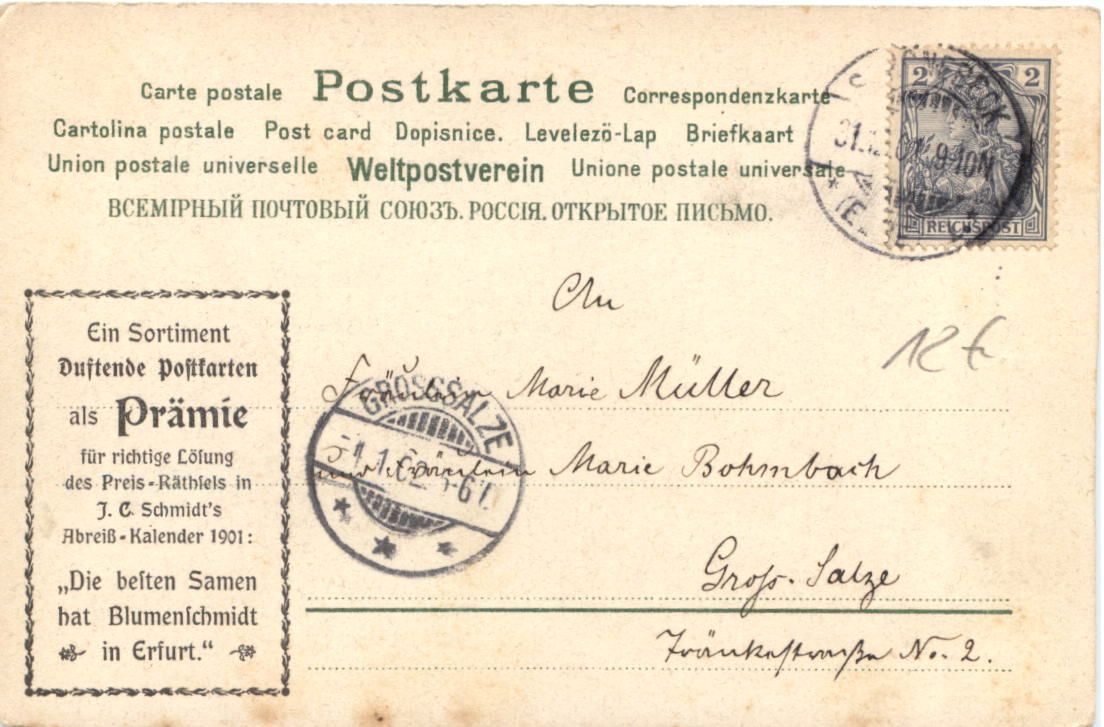 Carte postale Postkarte Correspondenzkarte
Cartolina postale Post card Dopisnice. Levelezö-Lap Briefkaart
Union postale universelle Weltpostverein Unione postale universale
ВСЕМІРНЫЙ ПОЧТОВЫЙ СОЮЗЪ. РОССІЯ. ОТКРЫТОЕ ПИСЬМО.
2 2
REICHSPOST
9-10N
An
12 €
Fräulein Marie Müller
und Fräulein Marie Bohmbach
Gross-Salze
Tränkestraße No. 2.
GROSSSALZE
Ein Sortiment
Duftende Postkarten
als Prämie
für richtige Löſung
des Preis-Räthſels in
J. C. Schmidt's
Abreiß-Kalender 1901:
„Die beſten Samen
hat Blumenſchmidt
in Erfurt."